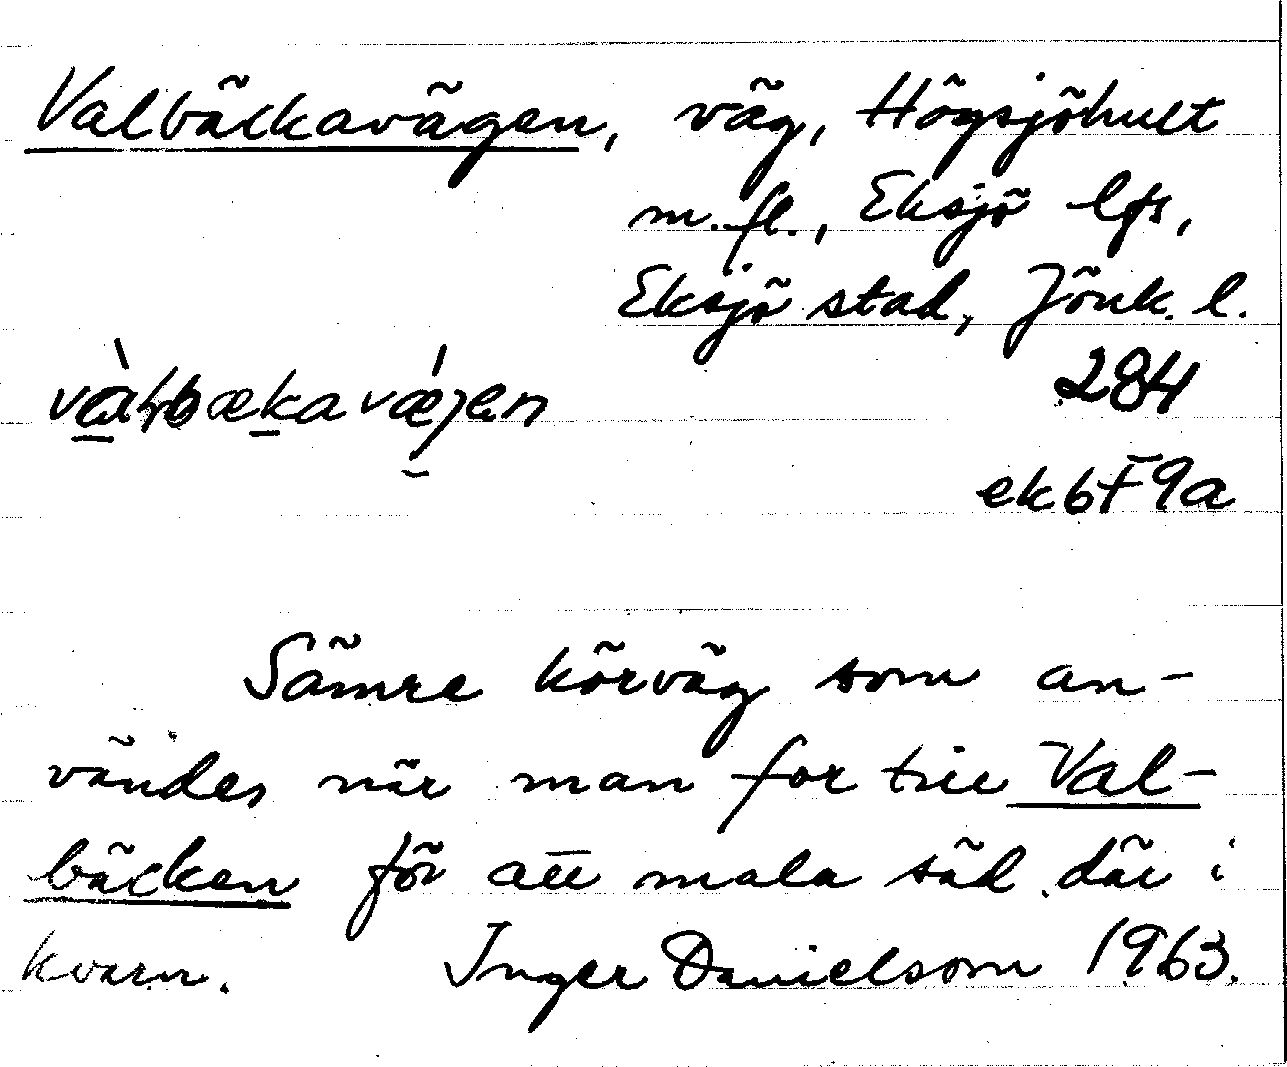 Valbäckavägen, väg, Högsjöhult
m.fl., Eksjö lfs,
Eksjö stad, Jönk. l.
284
ek 6 F 9a
Sämre körväg som an-
vändes när man for till Val-
bäcken för att mala säd där i
kvarn. Inger Danielsom 1963.